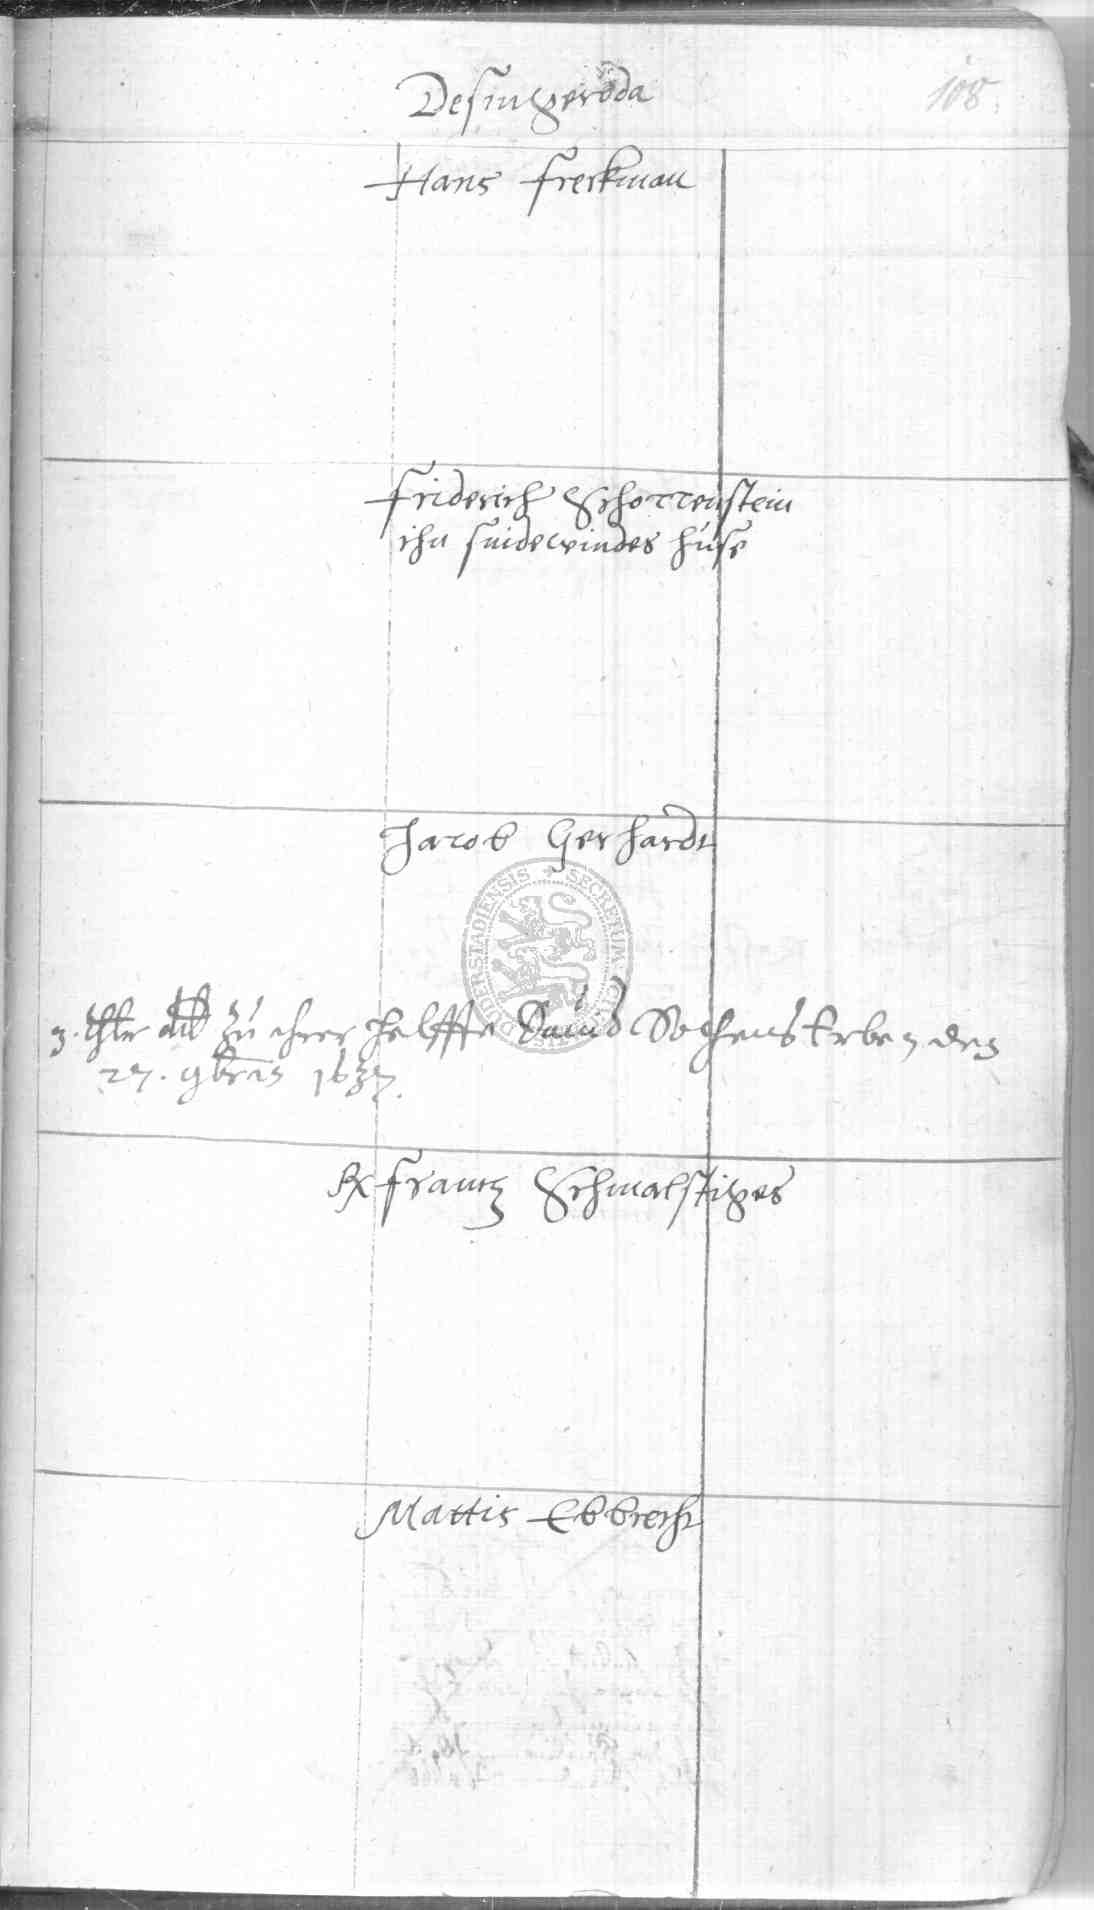 Desingeroda
108
Hans Freckman
Friderich Schottenstein
ihn snidewindes huse
Jacob Gerhardt
SECRETUM CIVI DUDERSTADIENSIS
3. thlr zu ihrer helffte Erben den
27. 9bris 1637.
Frantz Schmalstiges
Mattis Ebbrecht